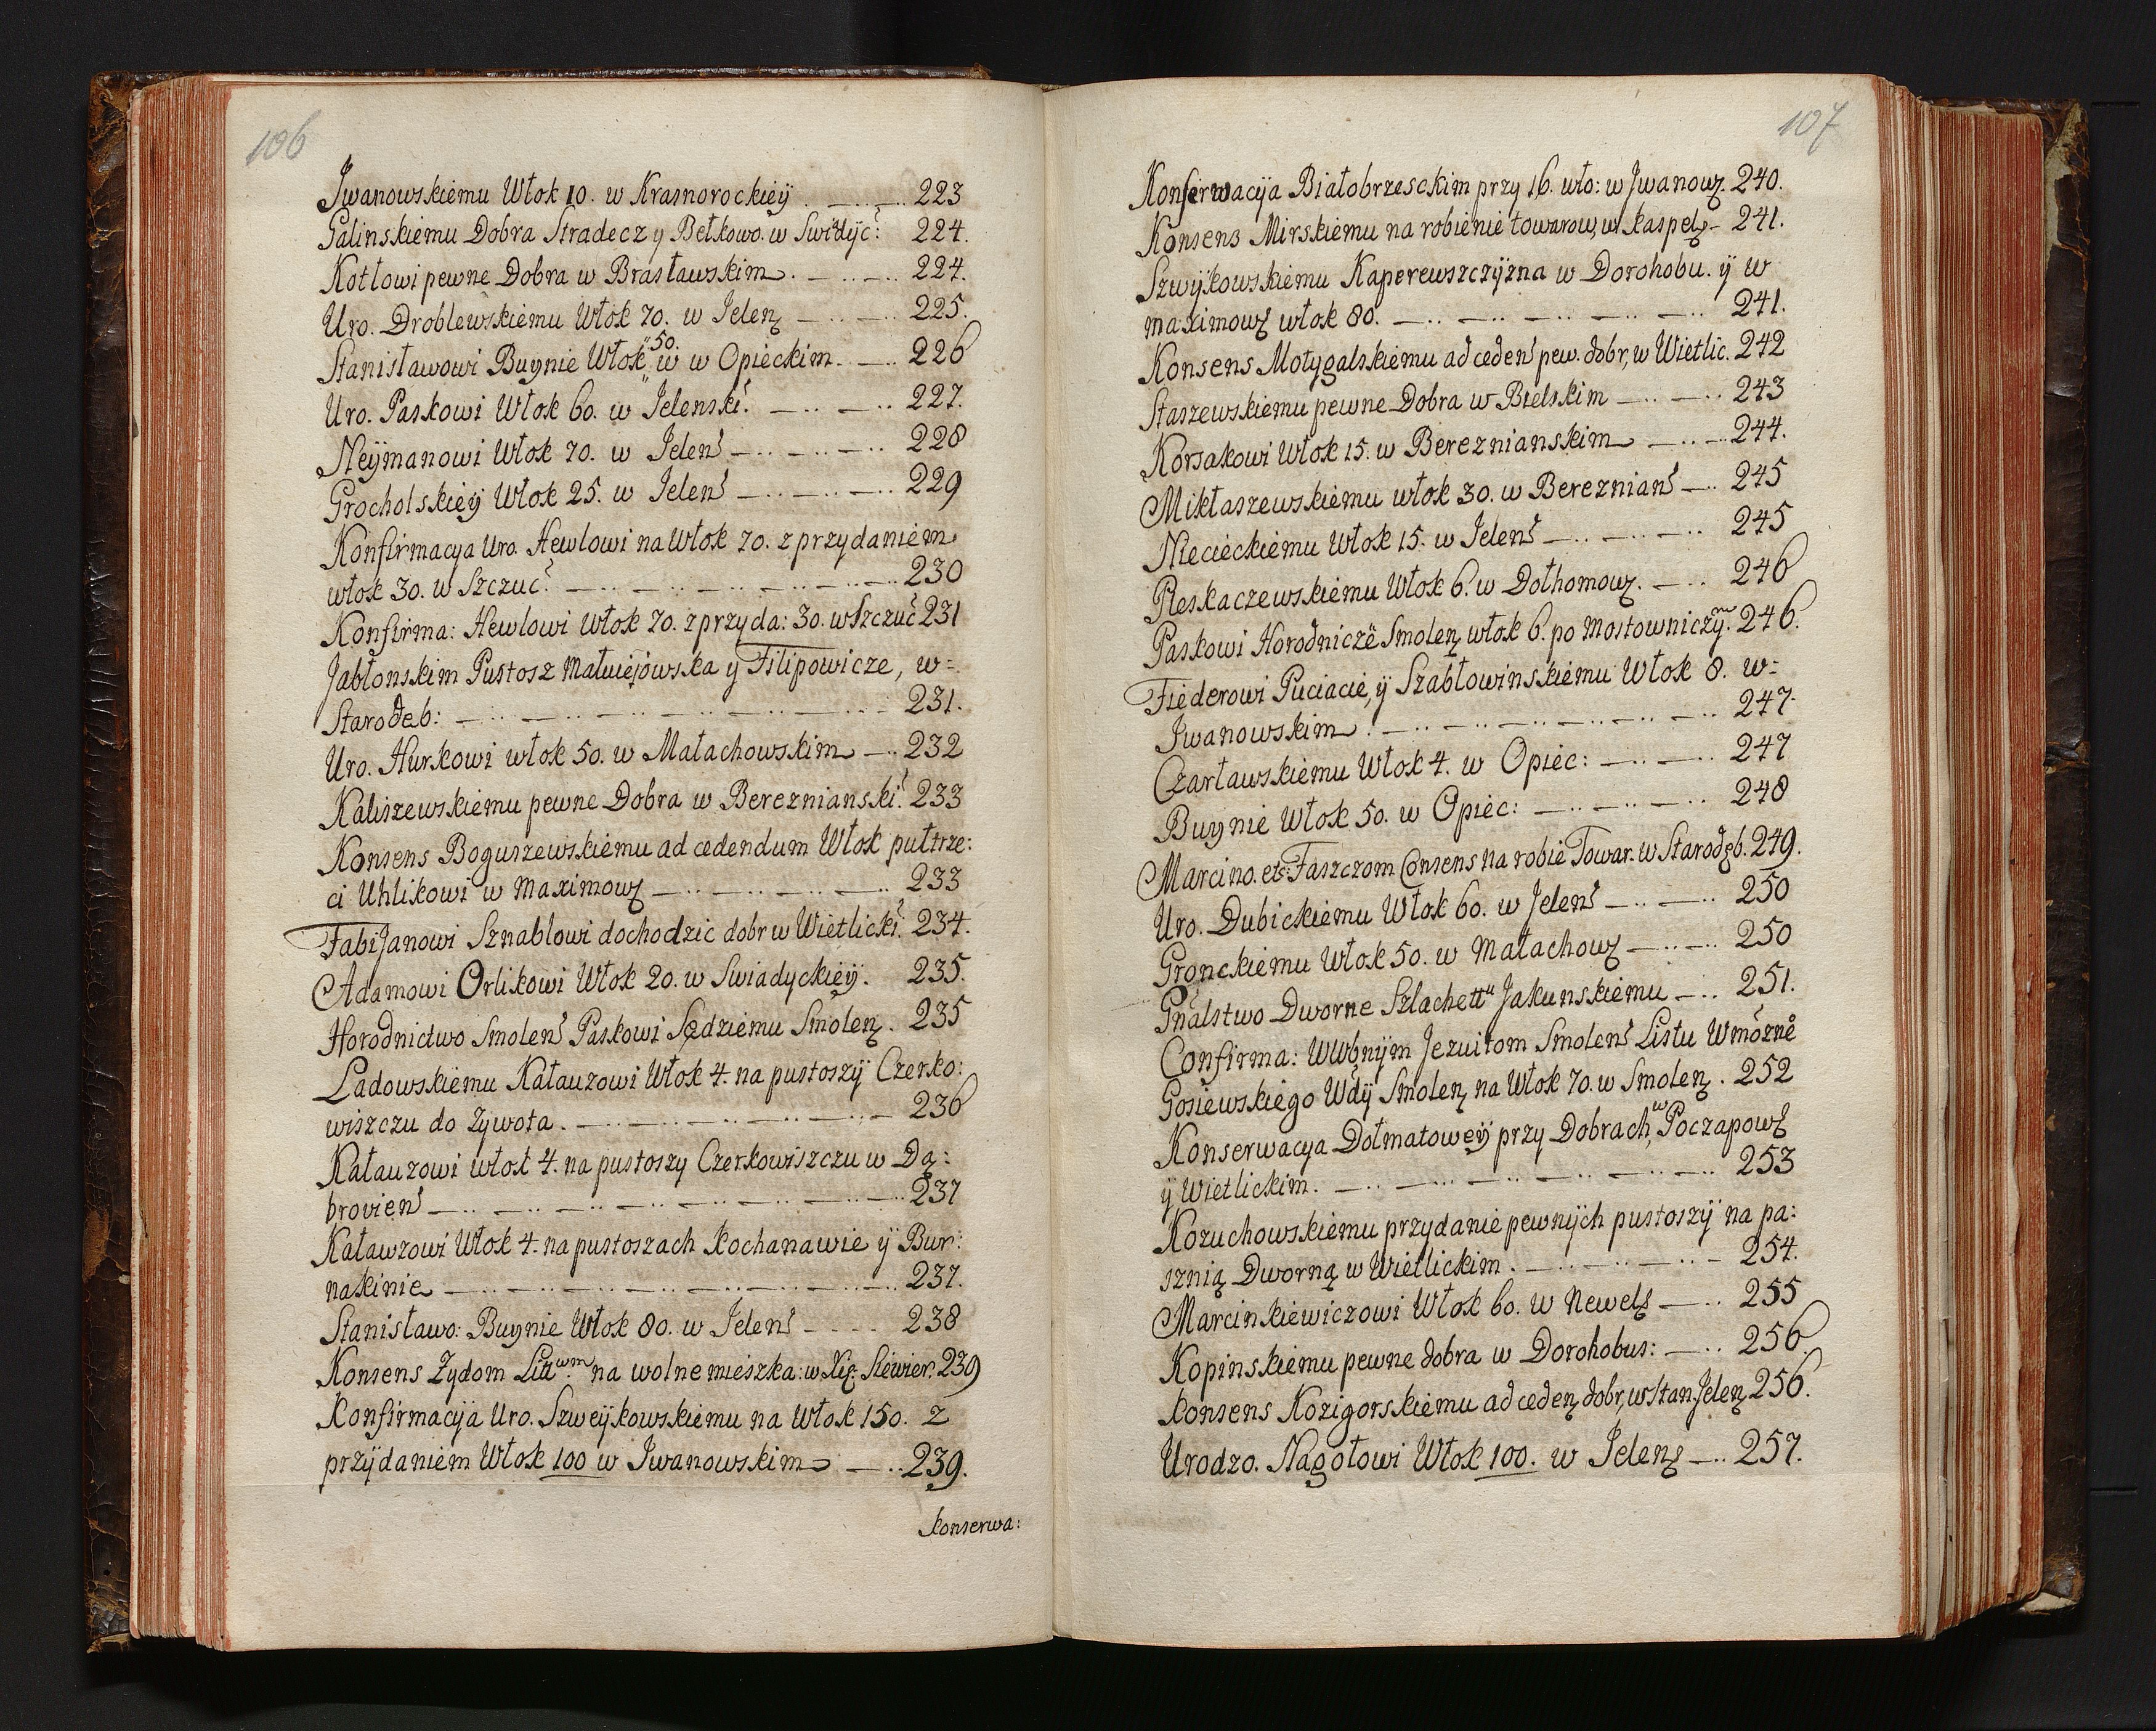 106
Jwanowskiemu Włok 10. w Krasnorockieÿ . — .. — .. 223
Galinskiemu Dobra Stradecz y Bełkowo. w Swidÿc: 224.
Kotłowi pewne Dobra w Brasławskim . — .. — .. 224.
Uro. Droblewskiemu Włok 70. w Jelen — .. — .. 225.
Stanisławowi Buynie Włok 50. w w Opieckim. — .. 226
Uro. Paskowi Włok 60. w Jelenski. — .. — .. 227.
Neÿmanowi Włok 70. w Jelen — .. — .. — .. 228
Grocholskieÿ Włok 25. w Jelen — .. — .. — .. 229
Konfirmacya Uro. Hewlowi na Włok 70. z przydaniem
włok 30. w Szczuc. — .. — .. — .. — .. — .. 230
Konfirma: Hewlowi Włok 70. z przyda: 30. w Szczuc 231
Jabłonskim Pustosz Matwiejowska y Filipowicze, w=
Starodeb: — .. — .. — .. — .. — .. — .. 231.
Uro. Hurkowi włok 50. w Małachowskim — .. 232
Kaliszewskiemu pewne Dobra w Bereznianski. 233
Konsens Boguszewskiemu ad cedendum Włok pułtrze:
ci Uhlikowi w Maximow — .. — .. — .. — .. 233
Fabijanowi Sznablowi dochodzic dobr w Wietlicki. 234.
Adamowi Orlikowi Włok 20. w Swiadyckieÿ. 235.
Horodnictwo Smolen Paskowi Sędziemu Smolen. 235
Ladowskiemu Kałauzowi Włok 4. na pustoszÿ Czerko:
wiszczu do Zywota. — .. — .. — .. — .. — 236
Kałauzowi włok 4. na pustoszy Czerkowiszczu w Dą:
brovien — .. — .. — .. — .. — .. — .. — .. 237
Kaławzowi Włok 4. na pustoszach Kochanawie ÿ Bur:
nakinie — .. — .. — .. — .. — .. — .. — .. 237.
Stanisławo: Buynie Włok 80. w Jelen — . . . . 238
Konsens Zydom Litwm na wolne mieszka: w Xię: Siewier. 239
Konfirmacÿa Uro. Szweÿkowskiemu na Włok 150. z
przÿdaniem Włok 100 w Jwanowskim — .. 239.
Konserwa:
107
Konserwacÿa Białobrzesckim przy 16. wło: w Jwanow. 240.
Konsens Mirskiemu na robienie towarow, w Kaspel - 241.
Szwÿkowskiemu Kaperewszczÿzna w Dorohobu. ÿ w
maximow włok 80. — .. — .. — .. — .. — .. 241.
Konsens Motygalskiemu ad ceden pew. dobr, w Wietlic. 242
Staszewskiemu pewne Dobra w Bielskim — .. — .. 243
Korsakowi Włok 15. w Bereznianskim — .. — .. 244.
Mikłaszewskiemu włok 30. w Berezian — .. 245
Niecieckiemu Włok 15. w Jelen — .. — .. — .. 245
Pleskaczewskiemu Włok 6. w Dołhomow. — .. 246
Paskowi Horodnicze Smolen włok 6. po Mostowniczym. 246.
Fiederowi Puciacie, ÿ Szabłowinskiemu Włok 8. w=
Jwanowskim. — .. — .. — .. — .. — .. — .. 247.
Czartawskiemu Włok 4. w Opiec: — .. — .. 247
Buynie Włok 50. w Opiec: — .. — .. — .. 248
Marcino. et Faszczom Consens na robie Towar. w Starodęb. 249.
Uro. Dubickiemu Włok 60. w Jelen — .. — .. 250
Gronckiemu Włok 50. w Małachow — .. — .. 250
Gnalstwo Dworne Szlachettu Jakunskiemu — .. 251.
Confirma: Wwbnÿm Jezuitom Smolen Listu Wmozne
Gosiewskiego Wdÿ Smolen na Włok 70. w Smolen. 252
Konserwacya Dołmatoweÿ przy Dobrach w Poczapow
ÿ Wietlickim. — .. — .. — .. — .. — .. — .. 253
Kozuchowskiemu przydanie pewnÿch pustoszÿ na pa:
sznią Dworną w Wietlickim. — .. — .. — .. — 254.
Marcinkiewiczowi Włok 60. w Newel — .. 255
Kopinskiemu pewne dobra w Dorohobus: — .. 256.
Konsens Kozigorskiemu ad ceden dobr, w stan. Jelen 256.
Urodzo. Nagotowi Włok 100. w Jelen — .. 257.